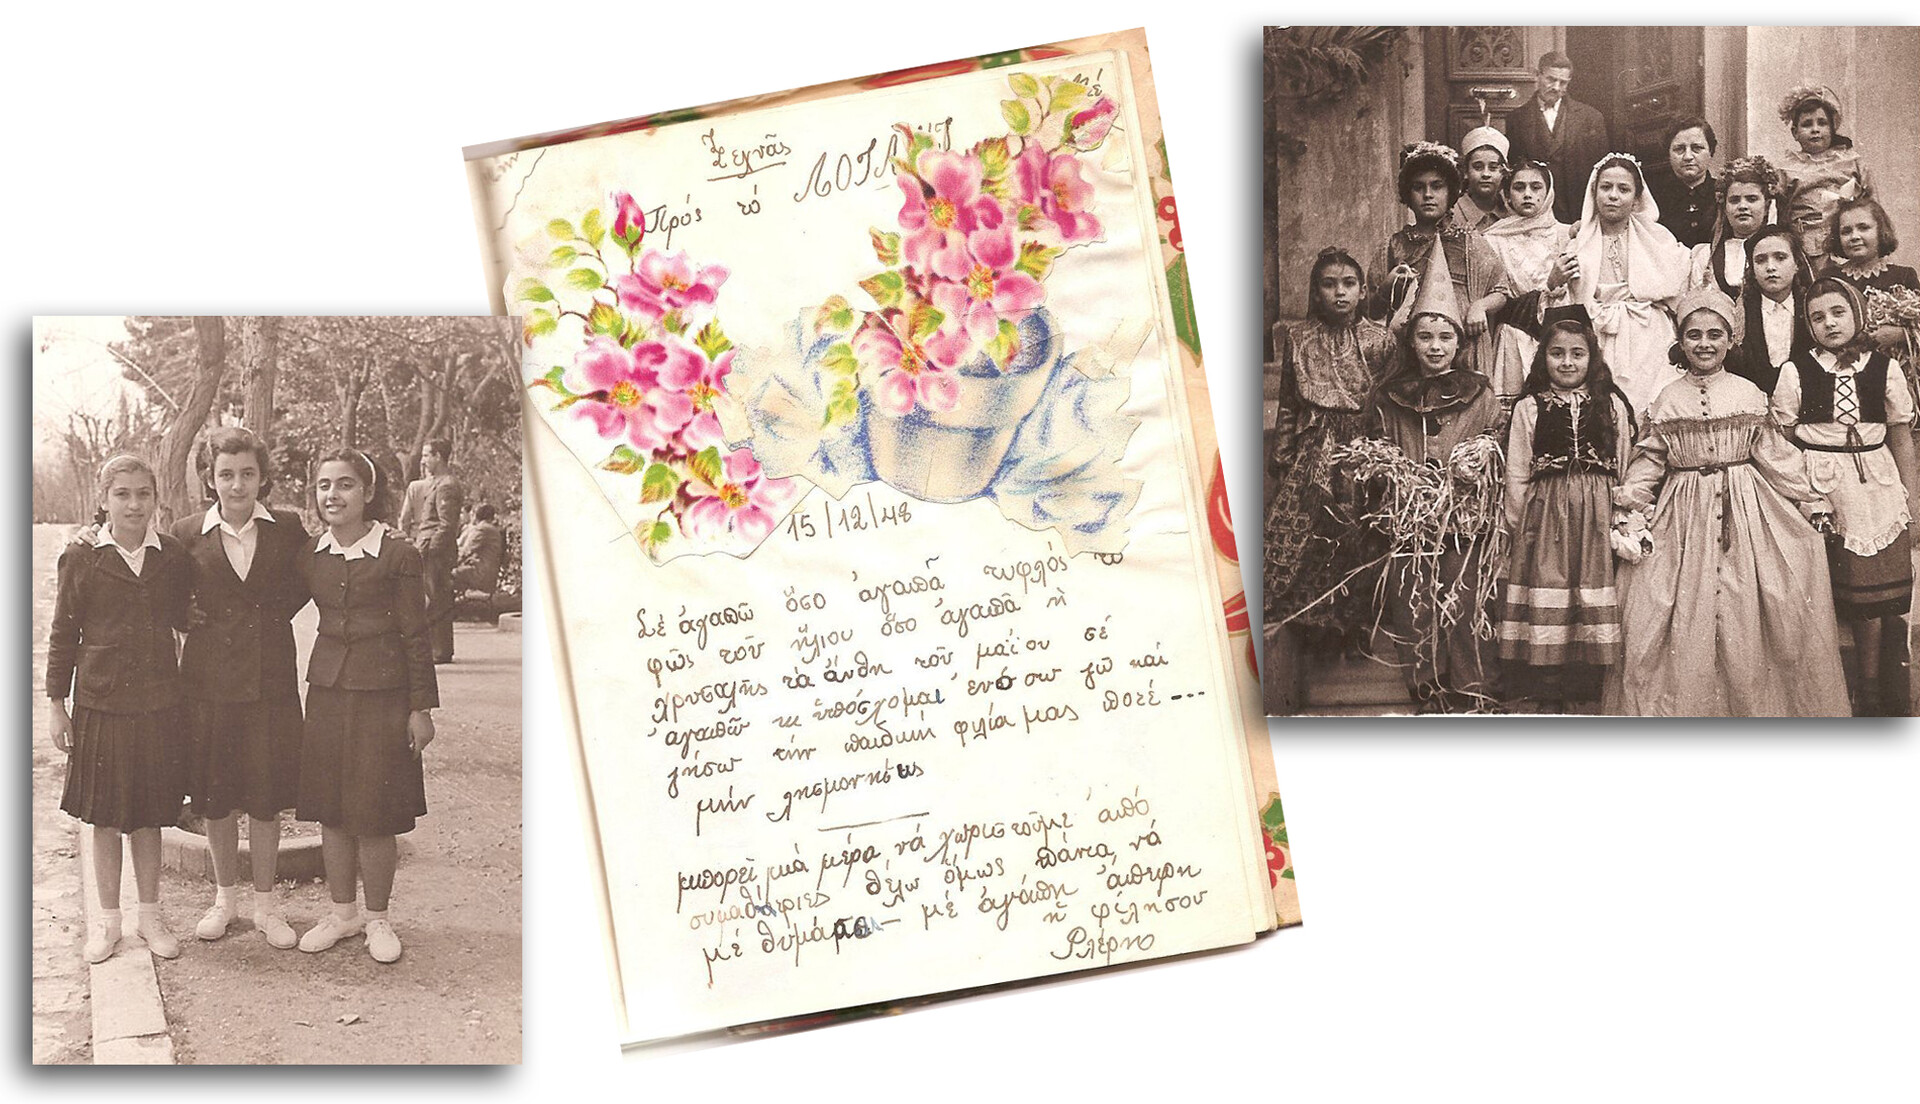 Ξεχνᾶς
Πρός τό
15/12/48
Σέ ἀγαπῶ ὅσο ἀγαπᾶ τυφλός τό
φῶς τοῦ ἥλιου ὅσο ἀγαπᾶ ἡ
χρυσαλης τά ἄνθη τοῦ μαΐου σέ
ἀγαπῶ κι ὑπόσχομαι ἐνόσω ζῶ καί
ζήσω τήν παιδική φιλία μας ποτέ ---
μήν λησμονήσεις
μπορεῖ μιά μέρα νά χωριστοῦμε ἀπό
συμαθήτριες θέλω ὅμως πάντα νά
μέ θυμᾶσαι — μέ ἀγάπη ἄπειρη
ἡ φίλησου